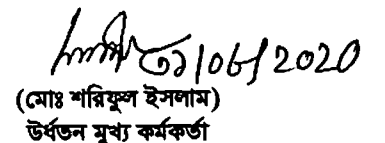 ৩১/০৮/2020
(মোঃ শরিফুল ইসলাম)
উর্ধতন মুখ্য কর্মকর্তা